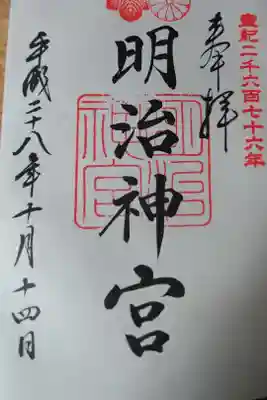 皇紀二千六百七十六年
奉拝
明治神宮
平成二十八年十月十四日